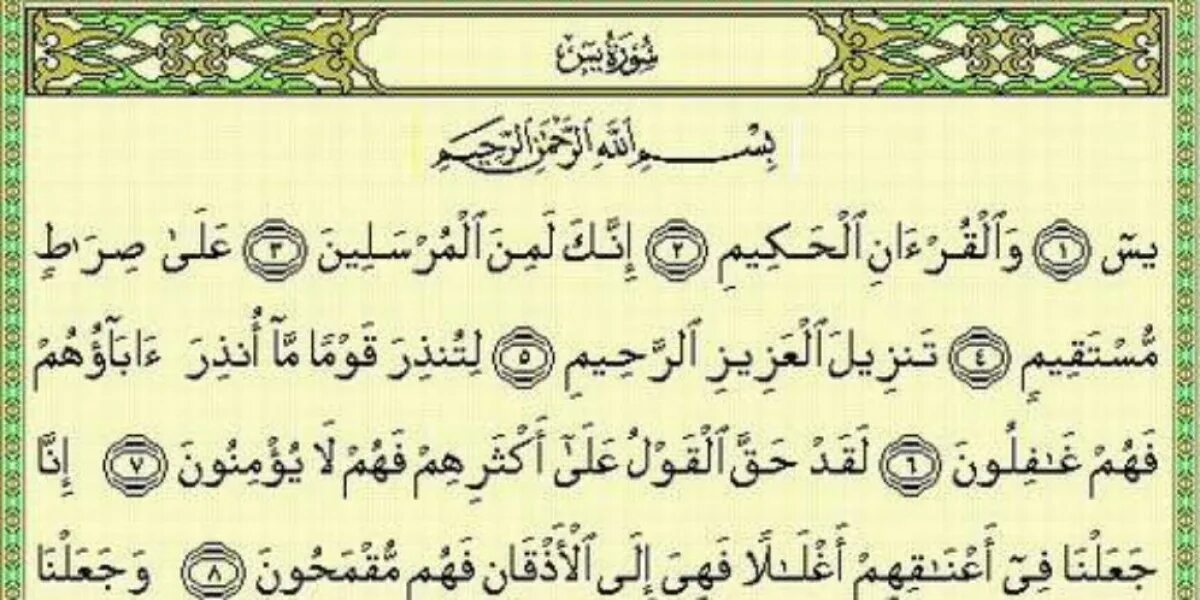 سُورَةُ يسٓ
بِسْمِ ٱللَّهِ ٱلرَّحْمَٰنِ ٱلرَّحِيمِ
يسٓ ١ وَٱلْقُرْءَانِ ٱلْحَكِيمِ ٢ إِنَّكَ لَمِنَ ٱلْمُرْسَلِينَ ٣ عَلَىٰ صِرَٰطٍ
مُّسْتَقِيمٍ ٤ تَنزِيلَ ٱلْعَزِيزِ ٱلرَّحِيمِ ٥ لِتُنذِرَ قَوْمًا مَّآ أُنذِرَ ءَابَآؤُهُمْ
فَهُمْ غَٰفِلُونَ ٦ لَقَدْ حَقَّ ٱلْقَوْلُ عَلَىٰٓ أَكْثَرِهِمْ فَهُمْ لَا يُؤْمِنُونَ ٧ إِنَّا
جَعَلْنَا فِىٓ أَعْنَٰقِهِمْ أَغْلَٰلًا فَهِىَ إِلَى ٱلْأَذْقَانِ فَهُم مُّقْمَحُونَ ٨ وَجَعَلْنَا